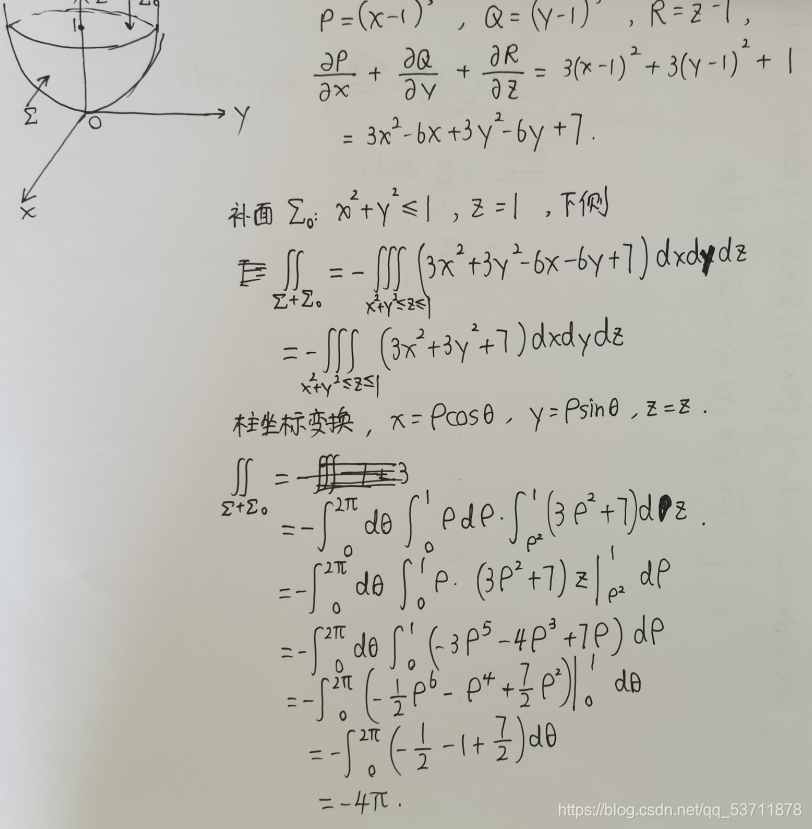 1
Σ
O
Y
X
P=(x-1)³, Q=(y-1)³, R=z-1,
∂P/∂x + ∂Q/∂y + ∂R/∂z = 3(x-1)²+3(y-1)²+1
= 3x²-6x+3y²-6y+7.
补面 Σ₀: x²+y²≤1, z=1, 下侧
∬_{Σ+Σ₀} = -∭_{x²+y²≤z≤1} (3x²+3y²-6x-6y+7) dxdydz
= -∭_{x²+y²≤z≤1} (3x²+3y²+7) dxdydz
柱坐标变换, x=ρcosθ, y=ρsinθ, z=z.
∬_{Σ+Σ₀} = - 3
= -∫₀^{2π} dθ ∫₀¹ ρdρ·∫_{ρ²}^1 (3ρ²+7)dz.
= -∫₀^{2π} dθ ∫₀¹ ρ·(3ρ²+7) z|_{ρ²}^1 dρ
= -∫₀^{2π} dθ ∫₀¹ (-3ρ⁵-4ρ³+7ρ) dρ
= -∫₀^{2π} (-1/2 ρ⁶-ρ⁴+7/2 ρ²)|₀¹ dθ
= -∫₀^{2π} (-1/2-1+7/2)dθ
= -4π.
https://blog.csdn.net/qq_53711878